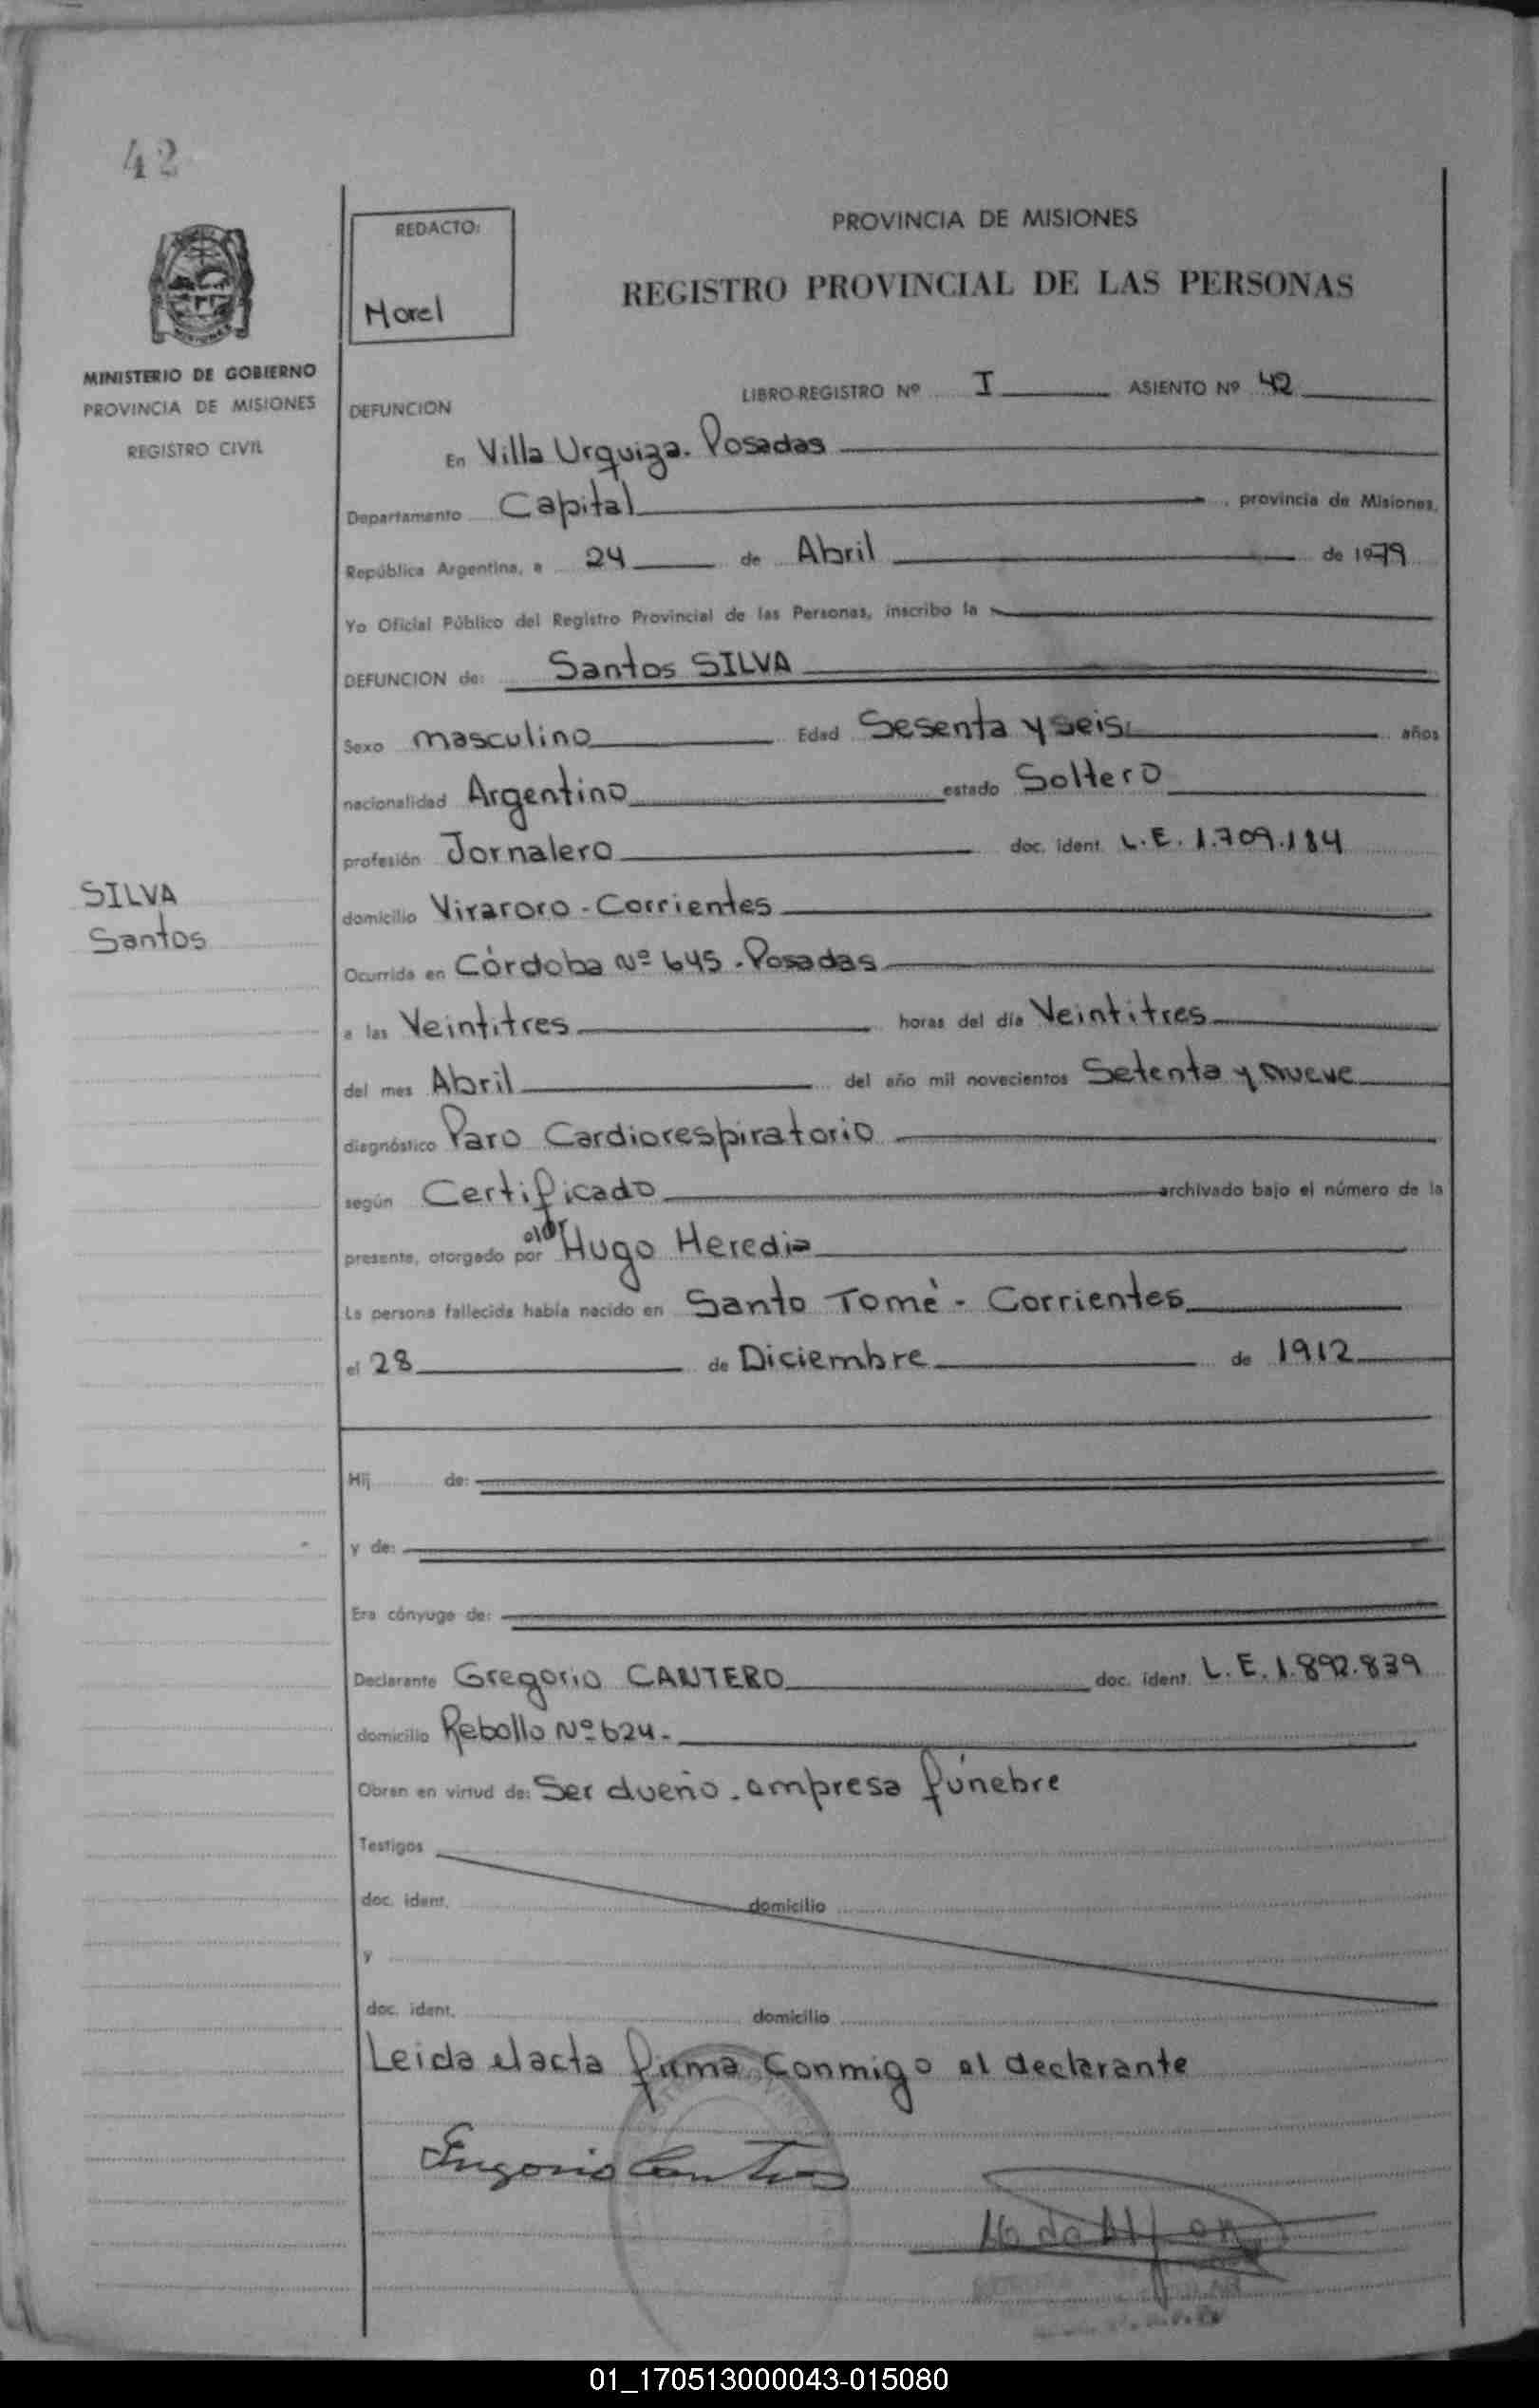 42
REDACTO:
Morel
PROVINCIA DE MISIONES
REGISTRO PROVINCIAL DE LAS PERSONAS
MINISTERIO DE GOBIERNO
PROVINCIA DE MISIONES
REGISTRO CIVIL
LIBRO-REGISTRO Nº I ASIENTO Nº 42
DEFUNCION
En Villa Urquiza. Posadas
Departamento Capital, provincia de Misiones,
República Argentina, a 24 de Abril de 1979
Yo Oficial Público del Registro Provincial de las Personas, inscribo la
DEFUNCION de: Santos SILVA
Sexo masculino Edad Sesenta y seis años
nacionalidad Argentino estado Soltero
profesión Jornalero doc. ident. L.E. 1.709.184
SILVA
Santos
domicilio Viraroro - Corrientes
Ocurrida en Córdoba Nº 645 - Posadas
a las Veintitres horas del día Veintitres
del mes Abril del año mil novecientos Setenta y nueve
diagnóstico Paro Cardiorespiratorio
según Certificado archivado bajo el número de la
presente, otorgado por Hugo Heredia
La persona fallecida había nacido en Santo Tomé - Corrientes
el 28 de Diciembre de 1912
Hij de:
y de:
Era cónyuge de:
Declarante Gregorio CANTERO doc. ident. L.E. 1.892.839
domicilio Rebollo Nº 624-
Obran en virtud de: Ser dueño - empresa fúnebre
Testigos
doc. ident. domicilio
y
doc. ident. domicilio
Leida el acta firma conmigo el declarante
01_170513000043-015080